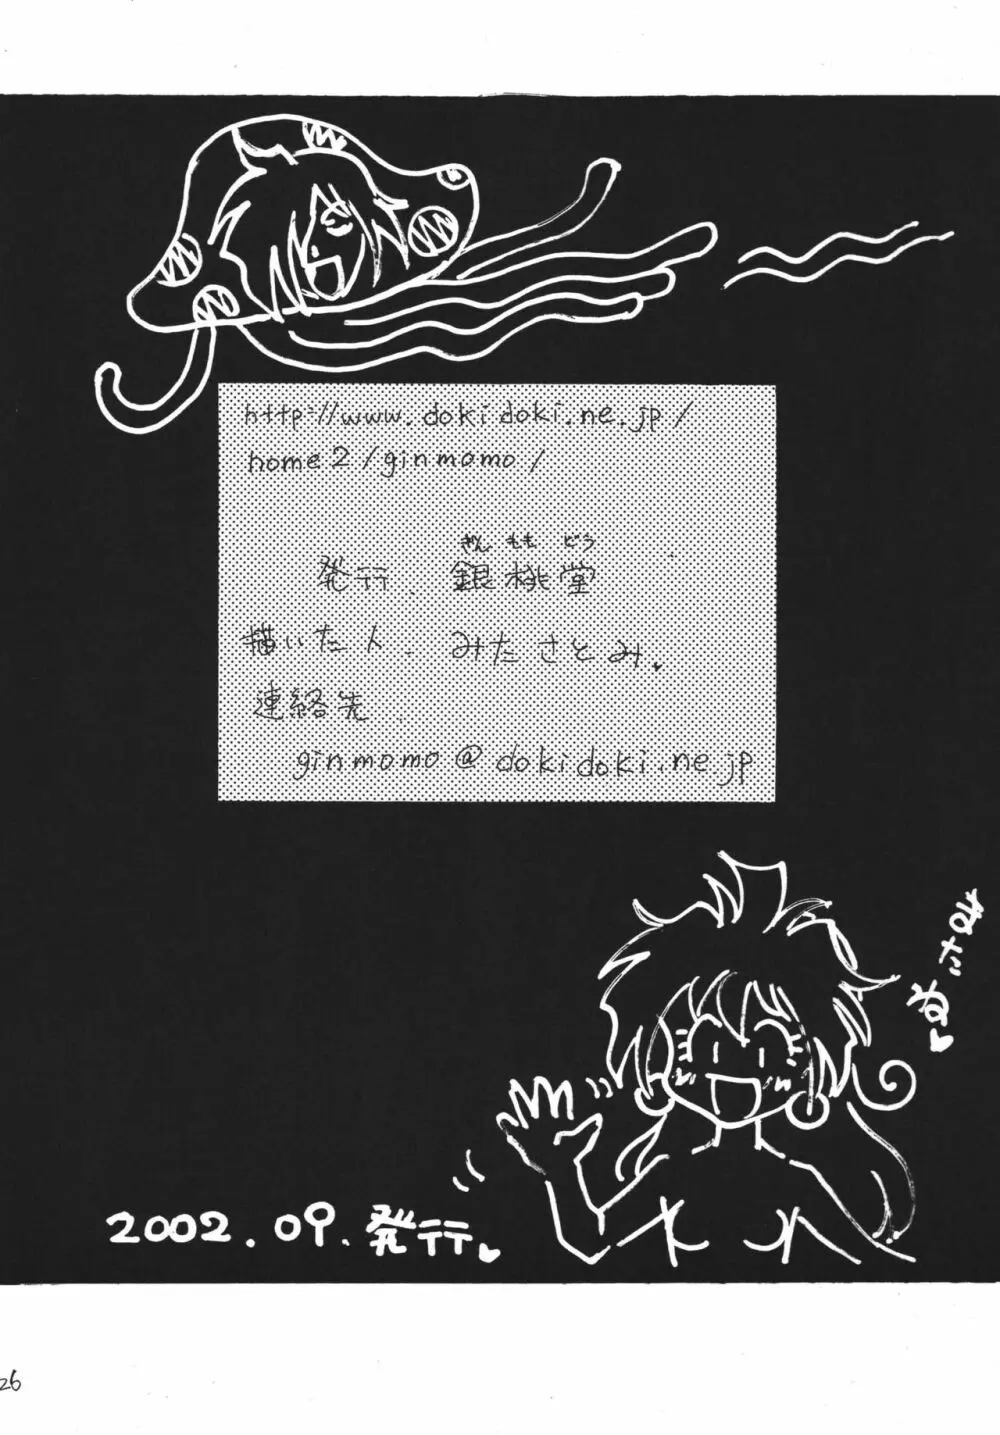 http://www.dokidoki.ne.jp/
home2/ginmomo/
ぎん もも どう
発行. 銀桃堂
描いた人. みたさとみ.
連絡先
ginmomo@dokidoki.ne.jp
2002.09.発行
26